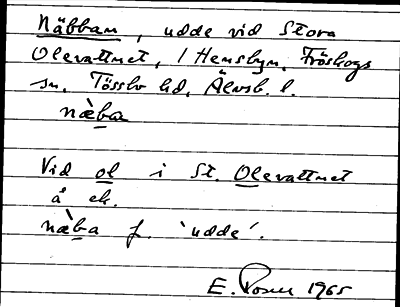 Näbban, udde vid Stora
Olevattnet, i Hensbyn, Fröskogs
sn, Tössbo hd, Älvsb. l.
næ̀ba
Vid ol i St. Olevattnet
å ek.
næ̀ba f. 'udde'.
E. 1965